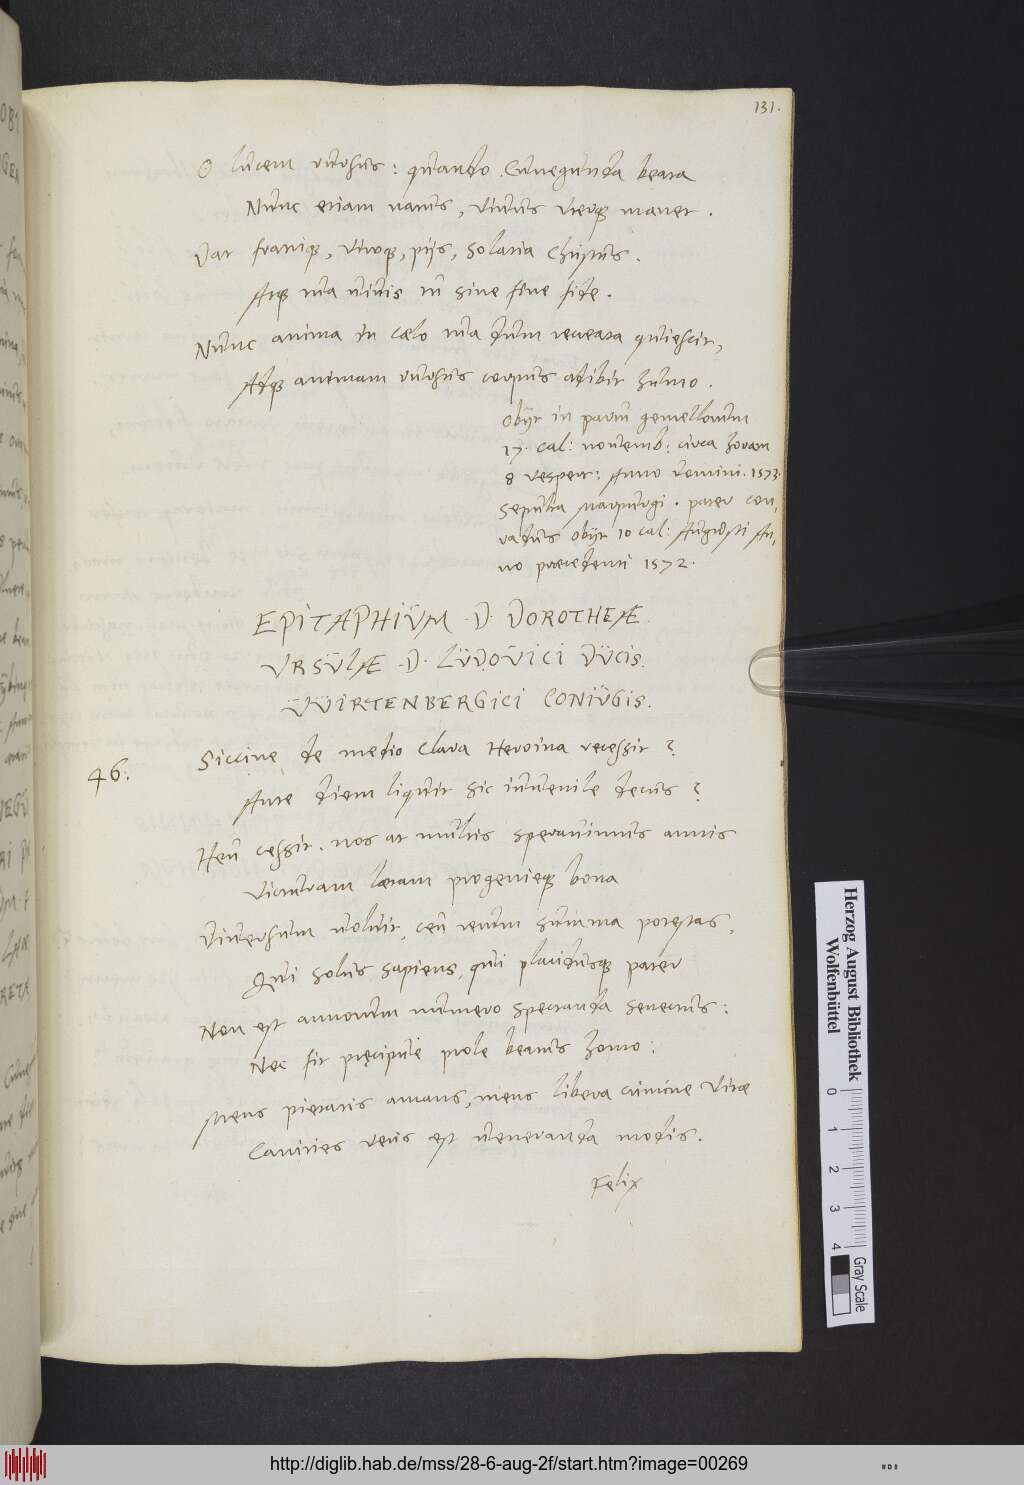 131.
O lucem rursus: quando Cunegunda beata
Nunc etiam natus, vivus uterq; manet.
Dat fratriq;, viroq;, pijs, solatia Christus.
Atq; ita vivitis in sine fine fide.
Nunc anima in cælo ita dum recreata quiescit,
Adq; animam rursus corpus adibit humo.
Obijt in partu gemellorum
17. Cal: novemb: circa horam
8 vespert: Anno domini. 1573.
Sepulta Marpurgi. pater Con,
radus obijt 10 cal: Augusti An,
no præcedenti 1572.
EPITAPHIUM D. DOROTHEÆ
URSULÆ D. LUDOVICI DUCIS
VUIRTENBERGICI CONIUGIS.
46.
Siccine de medio clara Heroina recessit?
Ante diem liquit sic iuvenile decus?
Heu cessit. nos at multis speravimus annis
Victuram lætam progenieq; bona
Diversum voluit, ceu rerum summa potestas,
Qui solus sapiens, qui placidusq; pater
Non est annorum numero spectanda senectus:
Nec fit præcipuè prole beatus homo:
Mens pietatis amans, mens libera crimine vitæ
Canities veris est veneranda modis.
Felix
Herzog August Bibliothek
Wolfenbüttel
0 1 2 3 4
Gray Scale
http://diglib.hab.de/mss/28-6-aug-2f/start.htm?image=00269